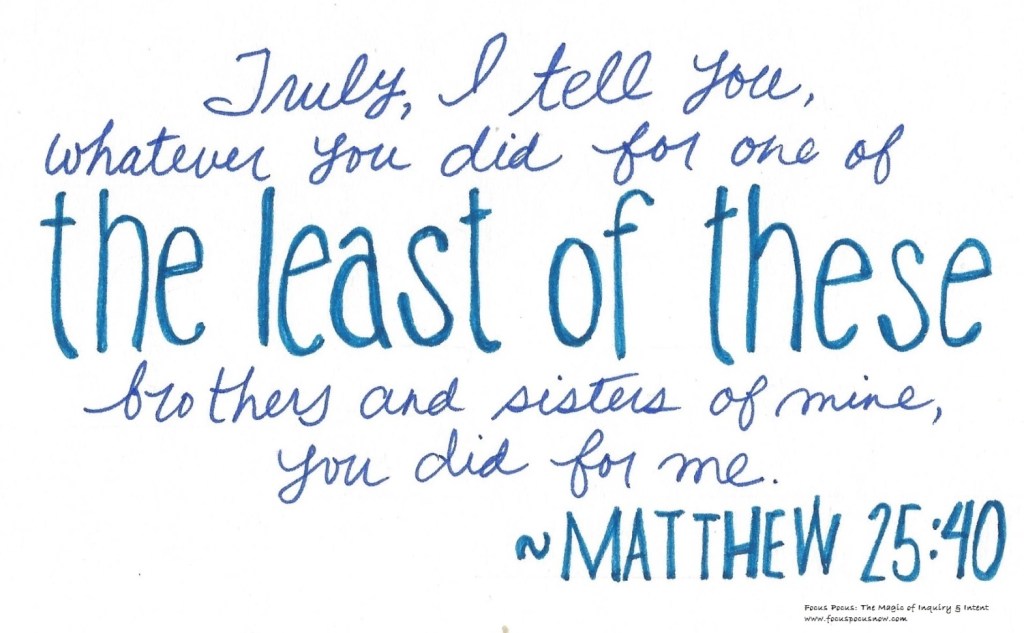 Truly, I tell you,
whatever you did for one of
the least of these
brothers and sisters of mine,
you did for me.
~MATTHEW 25:40
Focus Pocus: The Magic of Inquiry & Intent
www.focuspocusnow.com